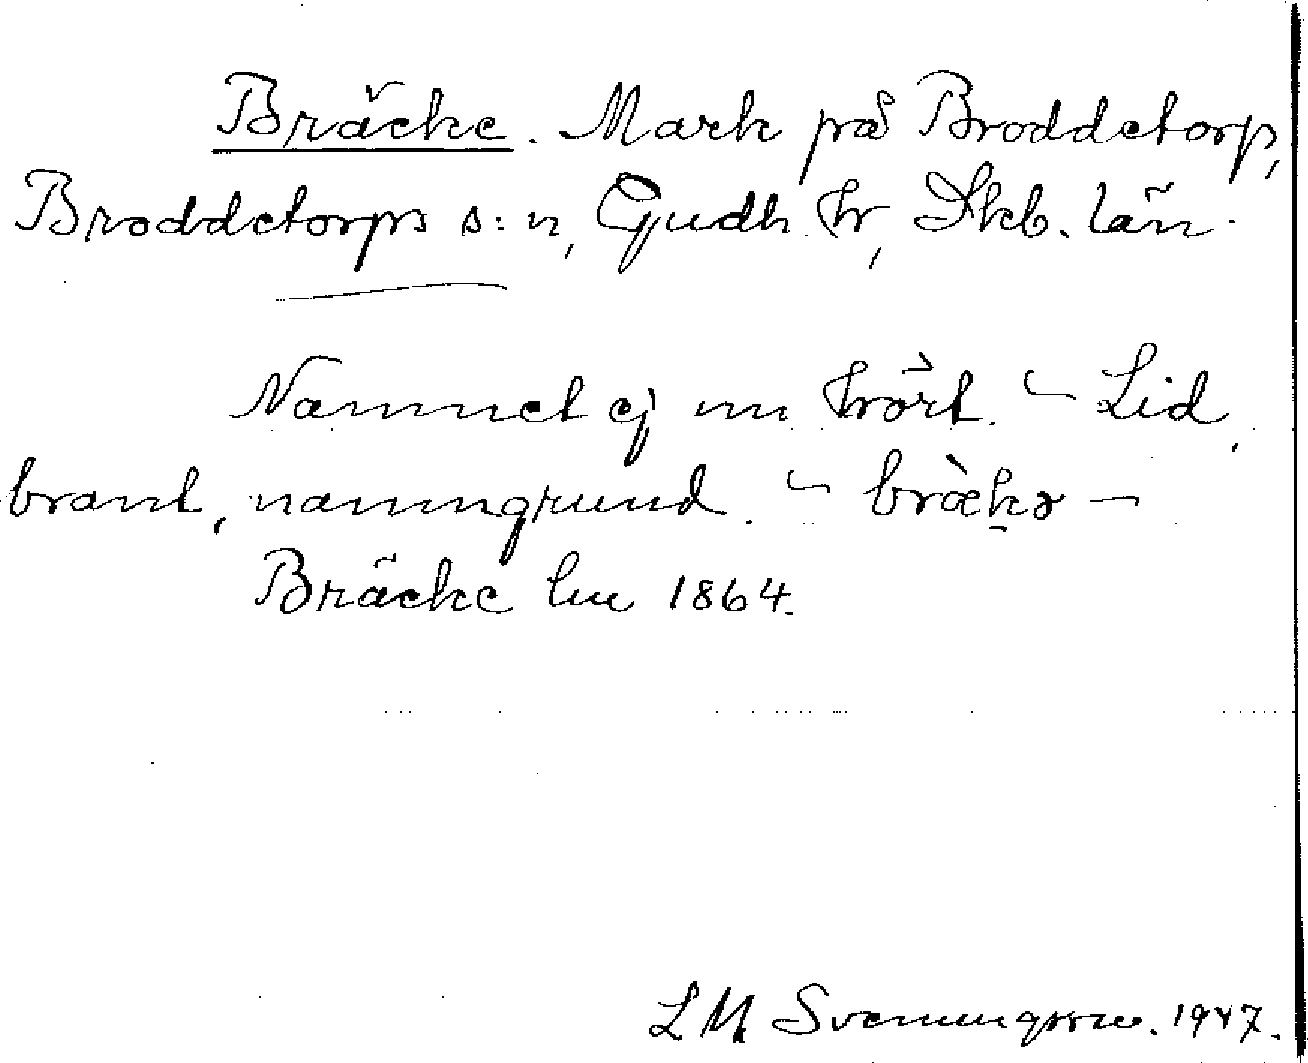 Bräcke. Mark på Broddetorp,
Broddetorps s:n, Gudh. hr, Skb. län.
Namnet ej nu hört. – Lid,
brant, namngrund. – bràkə –
Bräcke lm 1864.
L M Svenungsson. 1947.